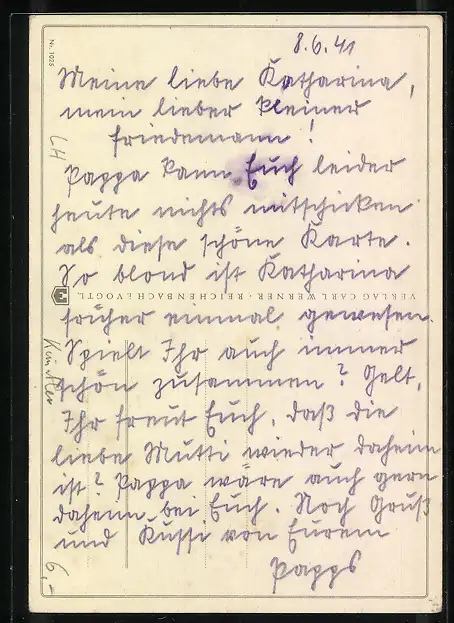 Nr. 1025
8.6.41
Meine liebe Katharina,
mein lieber kleiner
Friedemann!
Pappa kann Euch leider
heute nichts mitschicken
als diese schöne Karte.
So blond ist Katharina
VERLAG CARL WERNER · REICHENBACH I. VOGTL.
früher einmal gewesen.
Spielt Ihr auch immer
schön zusammen? Gelt,
Ihr freut Euch, daß die
liebe Mutti wieder daheim
ist? Pappa wäre auch gern
daheim bei Euch. Noch Gruß
und Kussi von Eurem
Papps
LH
Künstler
6,-